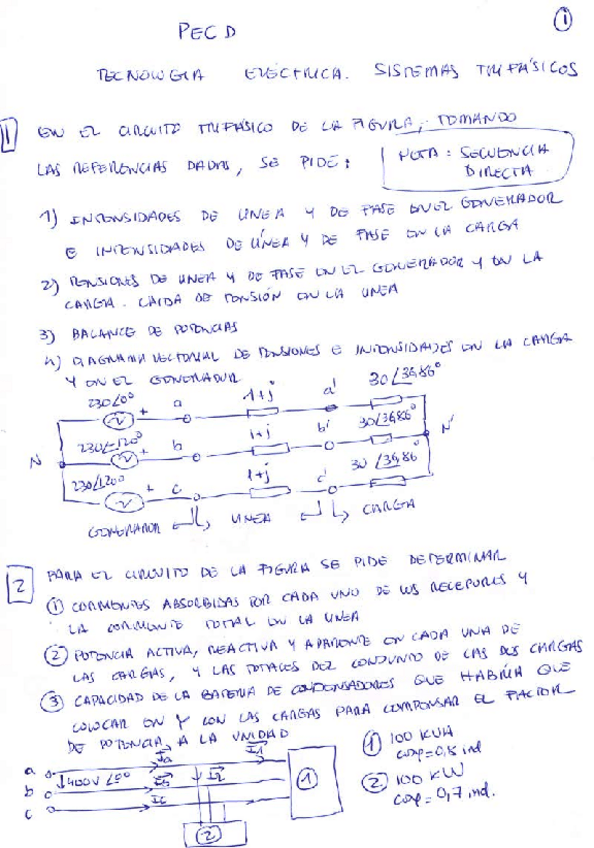 1
PEC D
TECNOLOGIA ELÉCTRICA. SISTEMAS TRIFÁSICOS
1 EN EL CIRCUITO TRIFÁSICO DE LA FIGURA, TOMANDO
LAS REFERENCIAS DADAS, SE PIDE:
NOTA: SECUENCIA
DIRECTA
1) INTENSIDADES DE LINEA Y DE FASE EN EL GENERADOR
E INTENSIDADES DE LÍNEA Y DE FASE EN LA CARGA
2) TENSIONES DE LINEA Y DE FASE EN EL GENERADOR Y EN LA
CARGA. CAIDA DE TENSIÓN EN LA LINEA
3) BALANCE DE POTENCIAS
4) DIAGRAMA VECTORIAL DE TENSIONES E INTENSIDADES EN LA CARGA
Y EN EL GENERADOR
230∠0° + a 1+j a' 30∠36,86°
230∠-120° + b 1+j b' 30∠36,86°
N N'
230∠120° + c 1+j c' 30∠36,86°
GENERADOR LINEA CARGA
2 PARA EL CIRCUITO DE LA FIGURA SE PIDE DETERMINAR
① CORRIENTES ABSORBIDAS POR CADA UNO DE LOS RECEPTORES Y
LA CORRIENTE TOTAL EN LA LINEA
② POTENCIA ACTIVA, REACTIVA Y APARENTE EN CADA UNA DE
LAS CARGAS, Y LAS TOTALES DEL CONJUNTO DE LAS DOS CARGAS
③ CAPACIDAD DE LA BATERIA DE CONDENSADORES QUE HABRIA QUE
COLOCAR EN Y CON LAS CARGAS PARA COMPENSAR EL FACTOR
DE POTENCIA A LA UNIDAD
① 100 KVA
cosφ=0,8 ind
② 100 KW
cosφ=0,7 ind.
a Ia I1
400V ∠0° I2
b Ib ①
c Ic
②